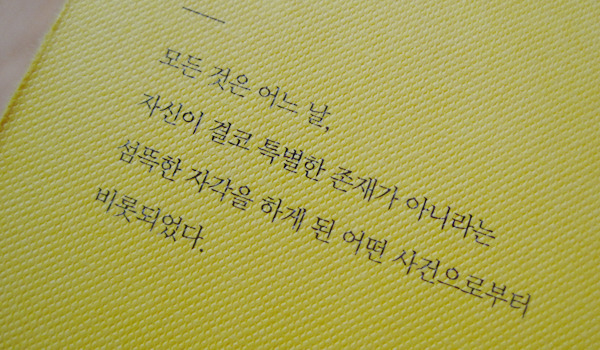 모든 것은 어느 날,
자신이 결코 특별한 존재가 아니라는
섬뜩한 자각을 하게 된 어떤 사건으로부터
비롯되었다.